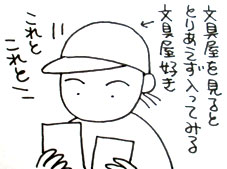 文具屋を見ると
とりあえず入ってみる
文具屋好き
これと
これと!